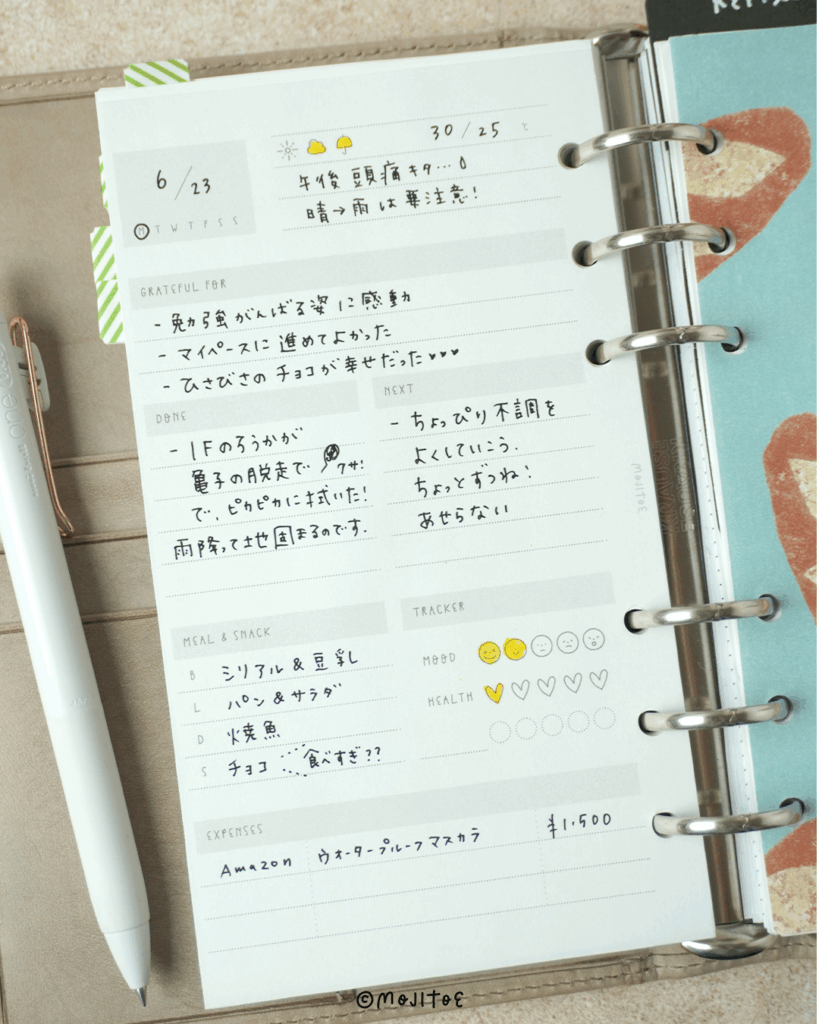 6/23
M T W T F S S
30/25 ℃
午後 頭痛キタ…
晴→雨は要注意!
GRATEFUL FOR
- 勉強がんばる姿に感動
- マイペースに進めてよかった
- ひさびさのチョコが幸せだった♥♥♥
DONE
- 1Fのろうかが
亀子の脱走で クサ!
で、ピカピカに拭いた!
雨降って地固まるのです.
NEXT
- ちょっぴり不調を
よくしていこう.
ちょっとずつね!
あせらない
MEAL & SNACK
B シリアル & 豆乳
L パン & サラダ
D 焼魚
S チョコ 食べすぎ??
TRACKER
MOOD
HEALTH
EXPENSES
Amazon ウォータープルーフマスカラ ¥1.500
MOJITOE
©MOJITOE